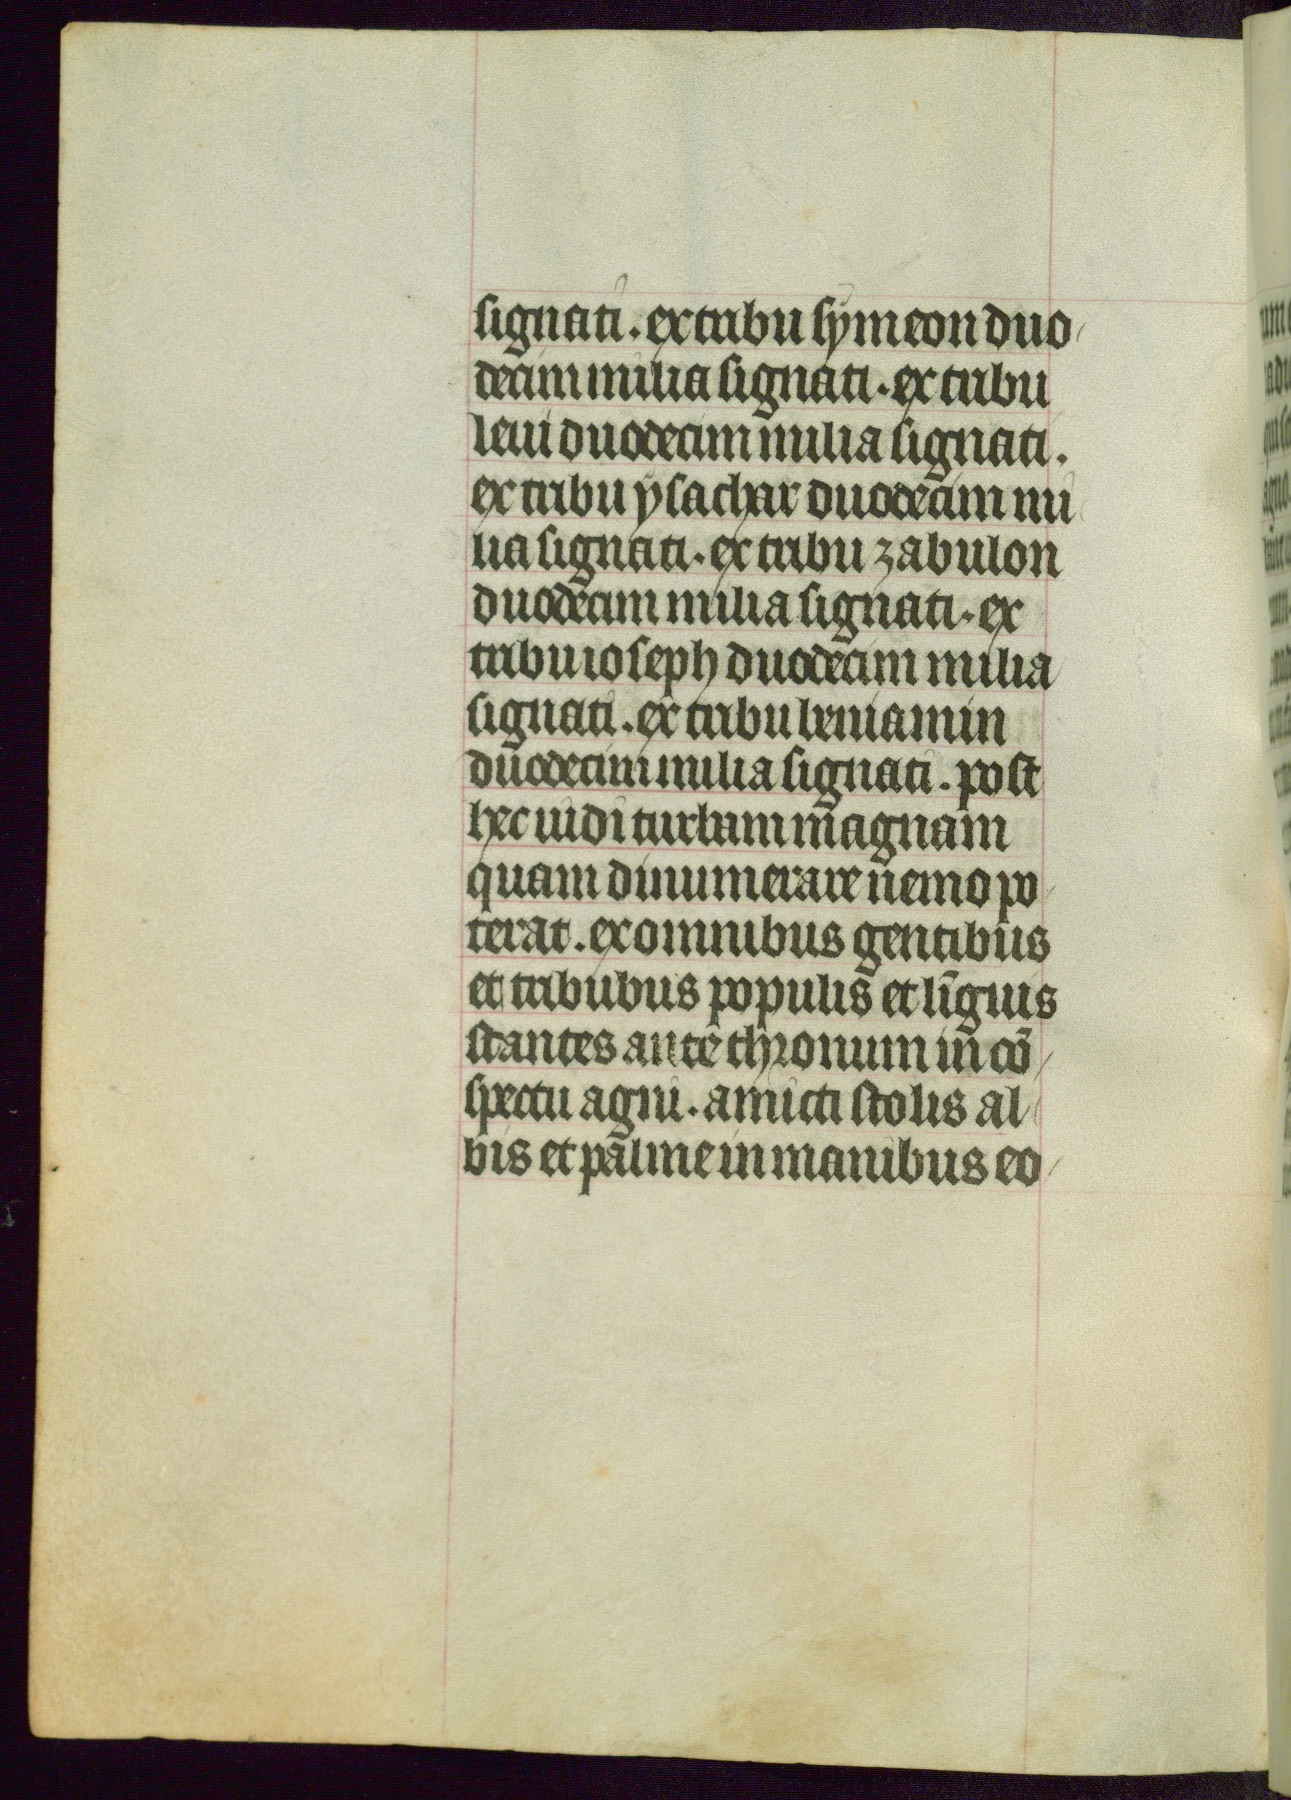 signati. ex tribu symeon duo
decim milia signati. ex tribu
leui duodecim milia signati.
ex tribu ysachar duodecim mi
lia signati. ex tribu zabulon
duodecim milia signati. ex
tribu ioseph duodecim milia
signati. ex tribu beniamin
duodecim milia signati. post
hec uidi turbam magnam
quam dinumerare nemo po
terat. ex omnibus gentibus
et tribubus populis et linguis
stantes ante thronum in cō
spectu agni. amicti stolis al
bis et palme in manibus eo